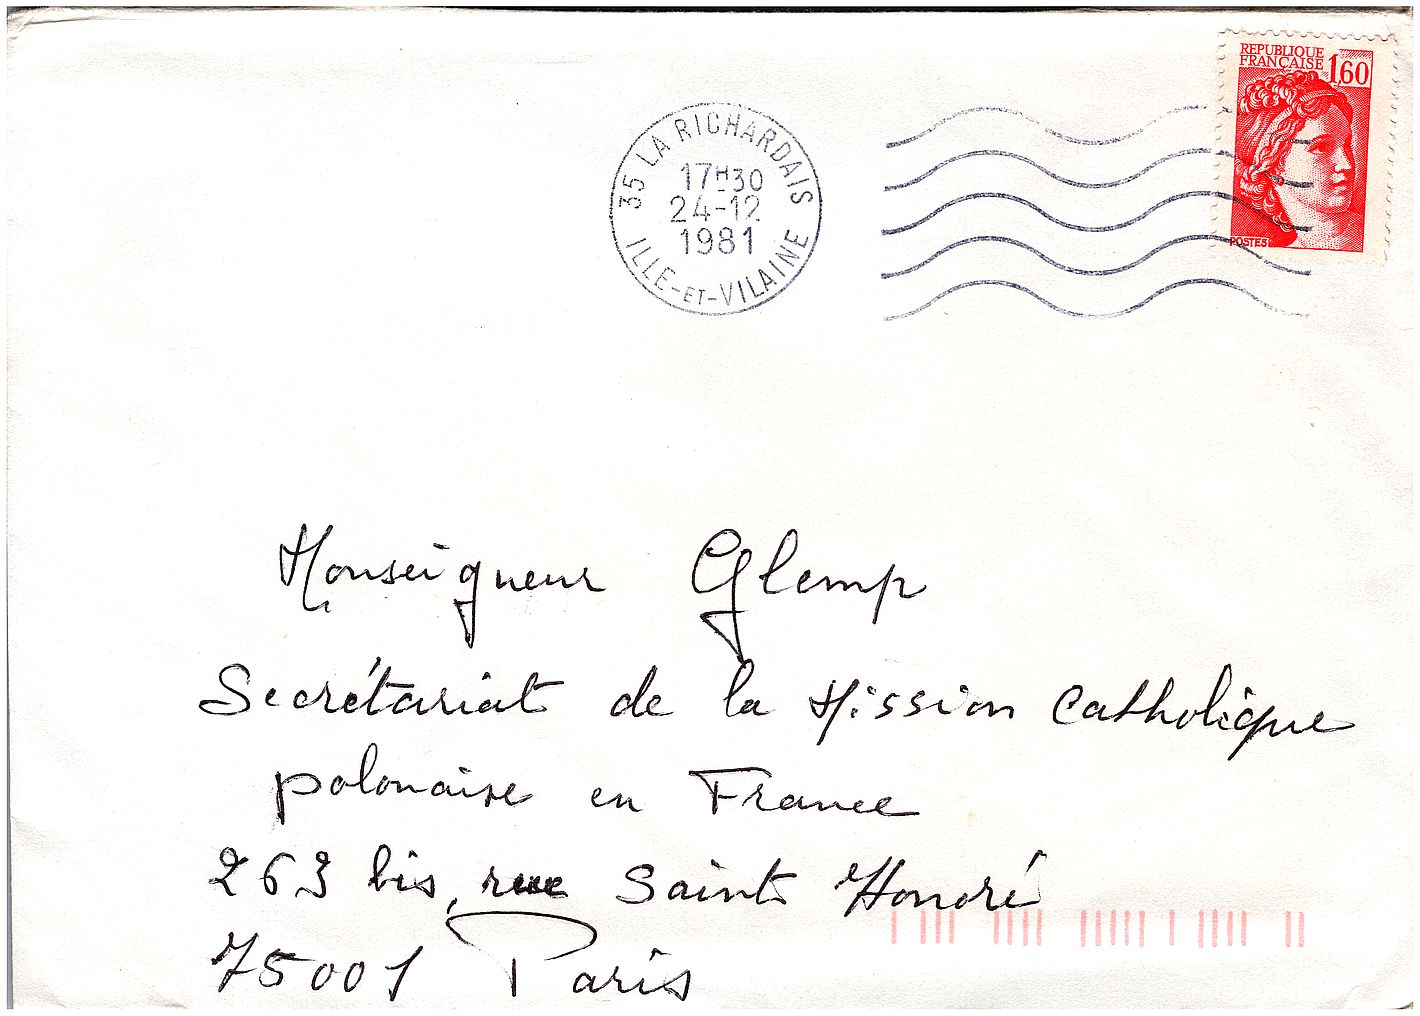 REPUBLIQUE
FRANÇAISE
1,60
POSTES
35 LA RICHARDAIS
17H30
24-12
1981
ILLE-ET-VILAINE
Monseigneur Glemp
Secrétariat de la Mission Catholique
polonaise en France
263 bis, rue Saint Honoré
75001 Paris